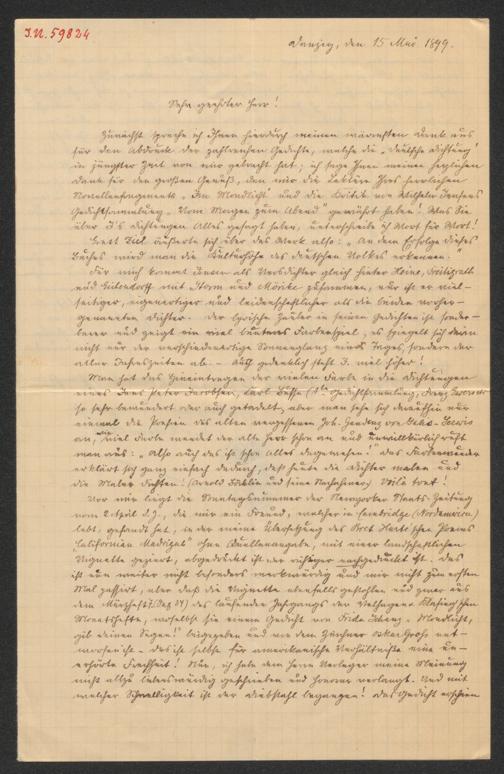 I.N. 59824
Danzig, den 15 Mai 1899.
Sehr geehrter Herr!
Zunächst spreche ich Ihnen hierdurch meinen wärmsten Dank aus
für den Abdruck der zahlreichen Gedichte, welche die „Deutsche Dichtung"
in jüngster Zeit von mir gebracht hat; ich sage Ihnen meinen herzlichen
Dank für den großen Genuß, den mir die Lektüre Ihres herrlichen
Novellenfragments „Im Mondlicht" und die Kritik von Wilhelm Jensens
Gedichtsammlung „Vom Morgen zum Abend" gewährt haben! Was Sie
über J's Dichtungen Alles gesagt haben, unterschreibe ich Wort für Wort!
äußerte sich über das Werk also: „An dem Erfolge dieses
Buches wird man die Culturhöhe des deutschen Volkes erkennen."
Für mich kommt Jensen als Versdichter gleich hinter Heine, Freiligrath
und Eichendorff mit Storm und Mörike zusammen, nur ist er viel-
seitiger, eigenartiger und leidenschaftlicher als die beiden vorher-
genannten Dichter. Der lyrische Zauber in seinen Gedichten ist sonder-
barer und zeigt ein viel bunteres Farbenspiel, es spiegelt sich darin
nicht nur der verschiedenartige Sonnenglanz eines Tages, sondern der
aller Jahreszeiten ab. – Auch gedanklich steht J. viel höher!
Man hat das Hineintragen der vielen Farbe in die Dichtungen
eines Jens Peter Jacobsen, Carl Busse (1te Gedichtsammlung), Franz
so sehr bewundert oder auch getadelt, aber man sehe sich daraufhin nur
einmal die Poesien des alten vergessenen Joh. Gaudenz von Salis-Seewis
an, viel Farbe wendet der alte Herr schon an und unwillkürlich ruft
man aus: „Also auch das ist schon Alles dagewesen!" Das Farbenwunder
erklärt sich ganz einfach dadurch, daß heute die Dichter malen und
die Maler dichten! (Arnold Böcklin und seine Nachahmer) Voilà tout!
Vor mir liegt die Sonntagsnummer der Newyorker Staats-Zeitung
vom 2 April d. J., die mir ein Freund, welcher in Cambridge (Nordamerica)
lebt, gesandt hat, in der meine Übersetzung des Bret Harte'schen Poems
„Californien Madrigal" ohne Quellenangabe, mit einer landschaftlichen
Vignette geziert, abgedruckt ist oder richtiger nachgedruckt ist. Das
ist nun weiter nicht besonders merkwürdig und mir nicht zum ersten
Mal passirt, aber daß die Vignette ebenfalls gestohlen und zwar aus
dem Märzheft 7 (Pag 84) des laufenden Jahrgangs der Velhagen & Klasing'schen
Monatshefte, woselbst sie einem Gedicht von Frida Schanz, „Mondlicht,
gib deinen Segen!" beigegeben und von dem Zeichner Oskar Groß ent-
worfen ist. Das ist selbst für amerikanische Verhältnisse eine un-
erhörte Frechheit! Nun, ich habe dem Herrn Verleger meine Meinung
nicht allzu liebenswürdig geschrieben und Honorar verlangt. Und mit
welcher Schnelligkeit ist der Diebstahl begangen! Das Gedicht erschien